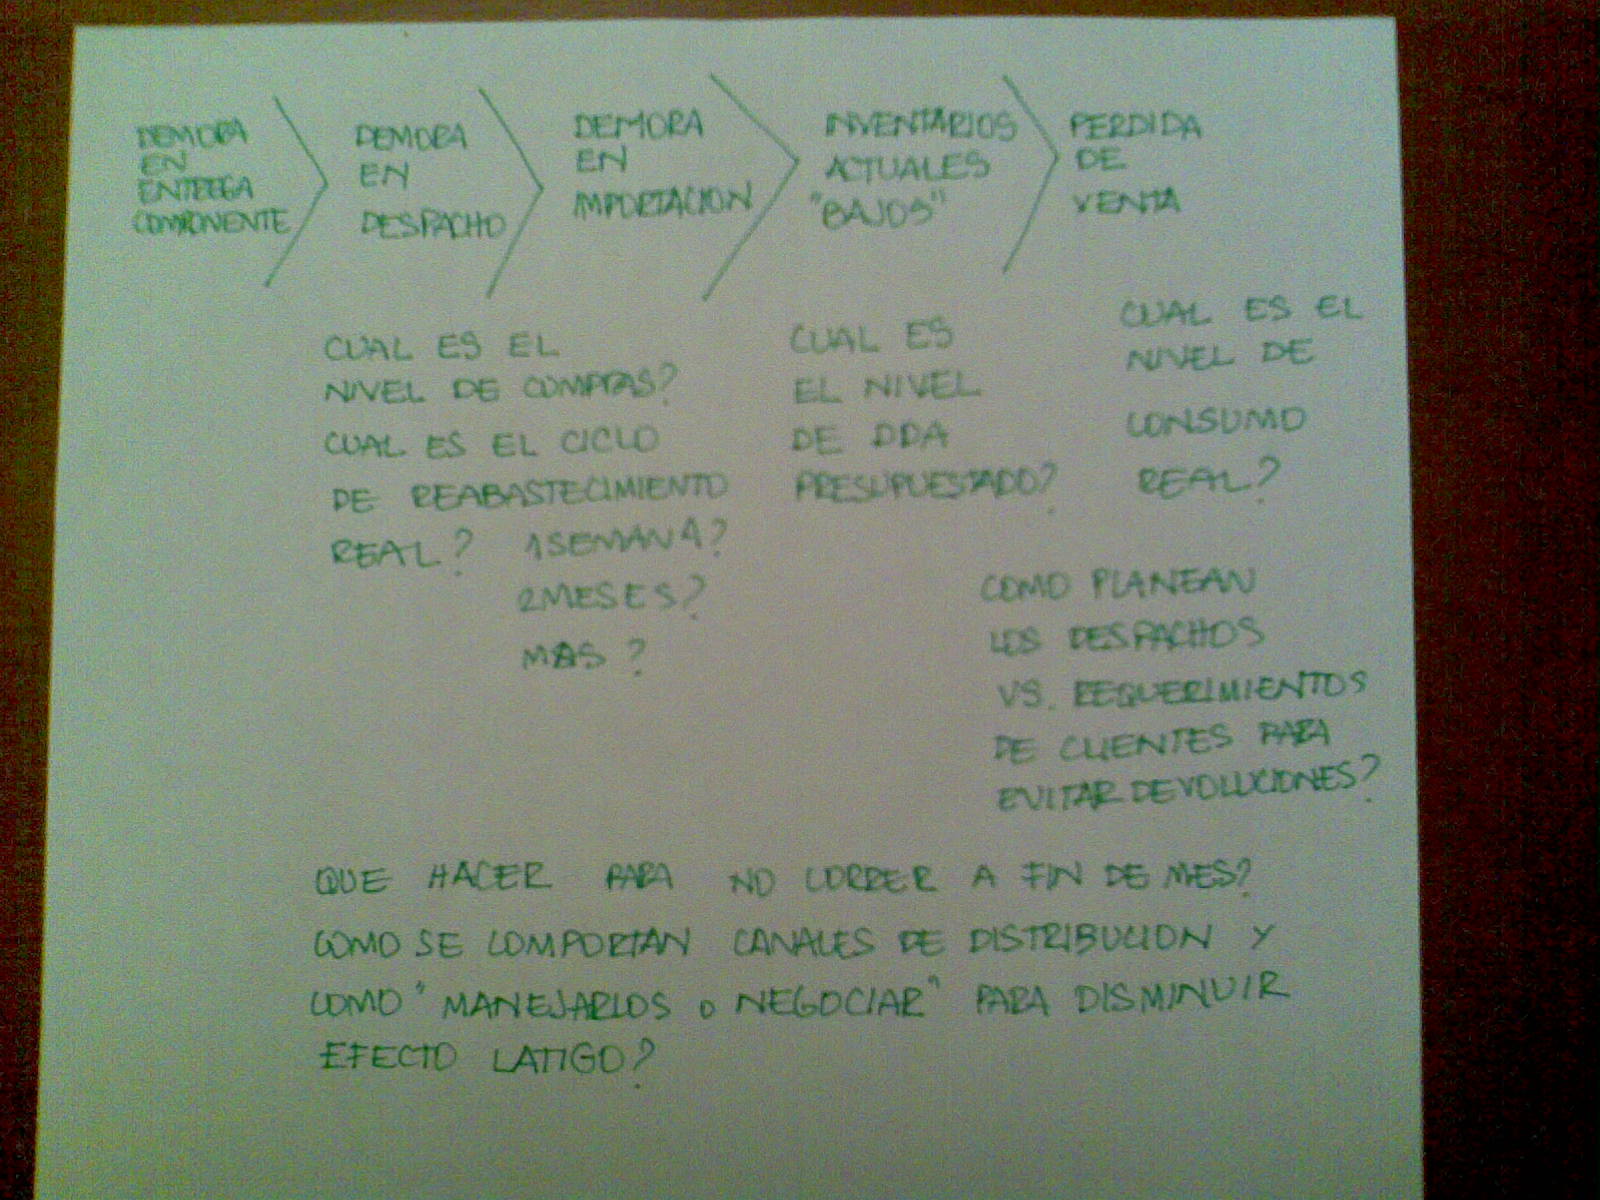 DEMORA
EN
ENTREGA
COMPONENTE
DEMORA
EN
DESPACHO
DEMORA
EN
IMPORTACION
INVENTARIOS
ACTUALES
"BAJOS"
PERDIDA
DE
VENTA
CUAL ES EL
NIVEL DE COMPRAS?
CUAL ES EL CICLO
DE REABASTECIMIENTO
REAL? 1 SEMANA?
2 MESES?
MAS?
CUAL ES
EL NIVEL
DE DDA
PRESUPUESTADO?
CUAL ES EL
NIVEL DE
CONSUMO
REAL?
COMO PLANEAN
LOS DESPACHOS
VS. REQUERIMIENTOS
DE CLIENTES PARA
EVITAR DEVOLUCIONES?
QUE HACER PARA NO CORRER A FIN DE MES?
COMO SE COMPORTAN CANALES DE DISTRIBUCION Y
COMO "MANEJARLOS O NEGOCIAR" PARA DISMINUIR
EFECTO LATIGO?